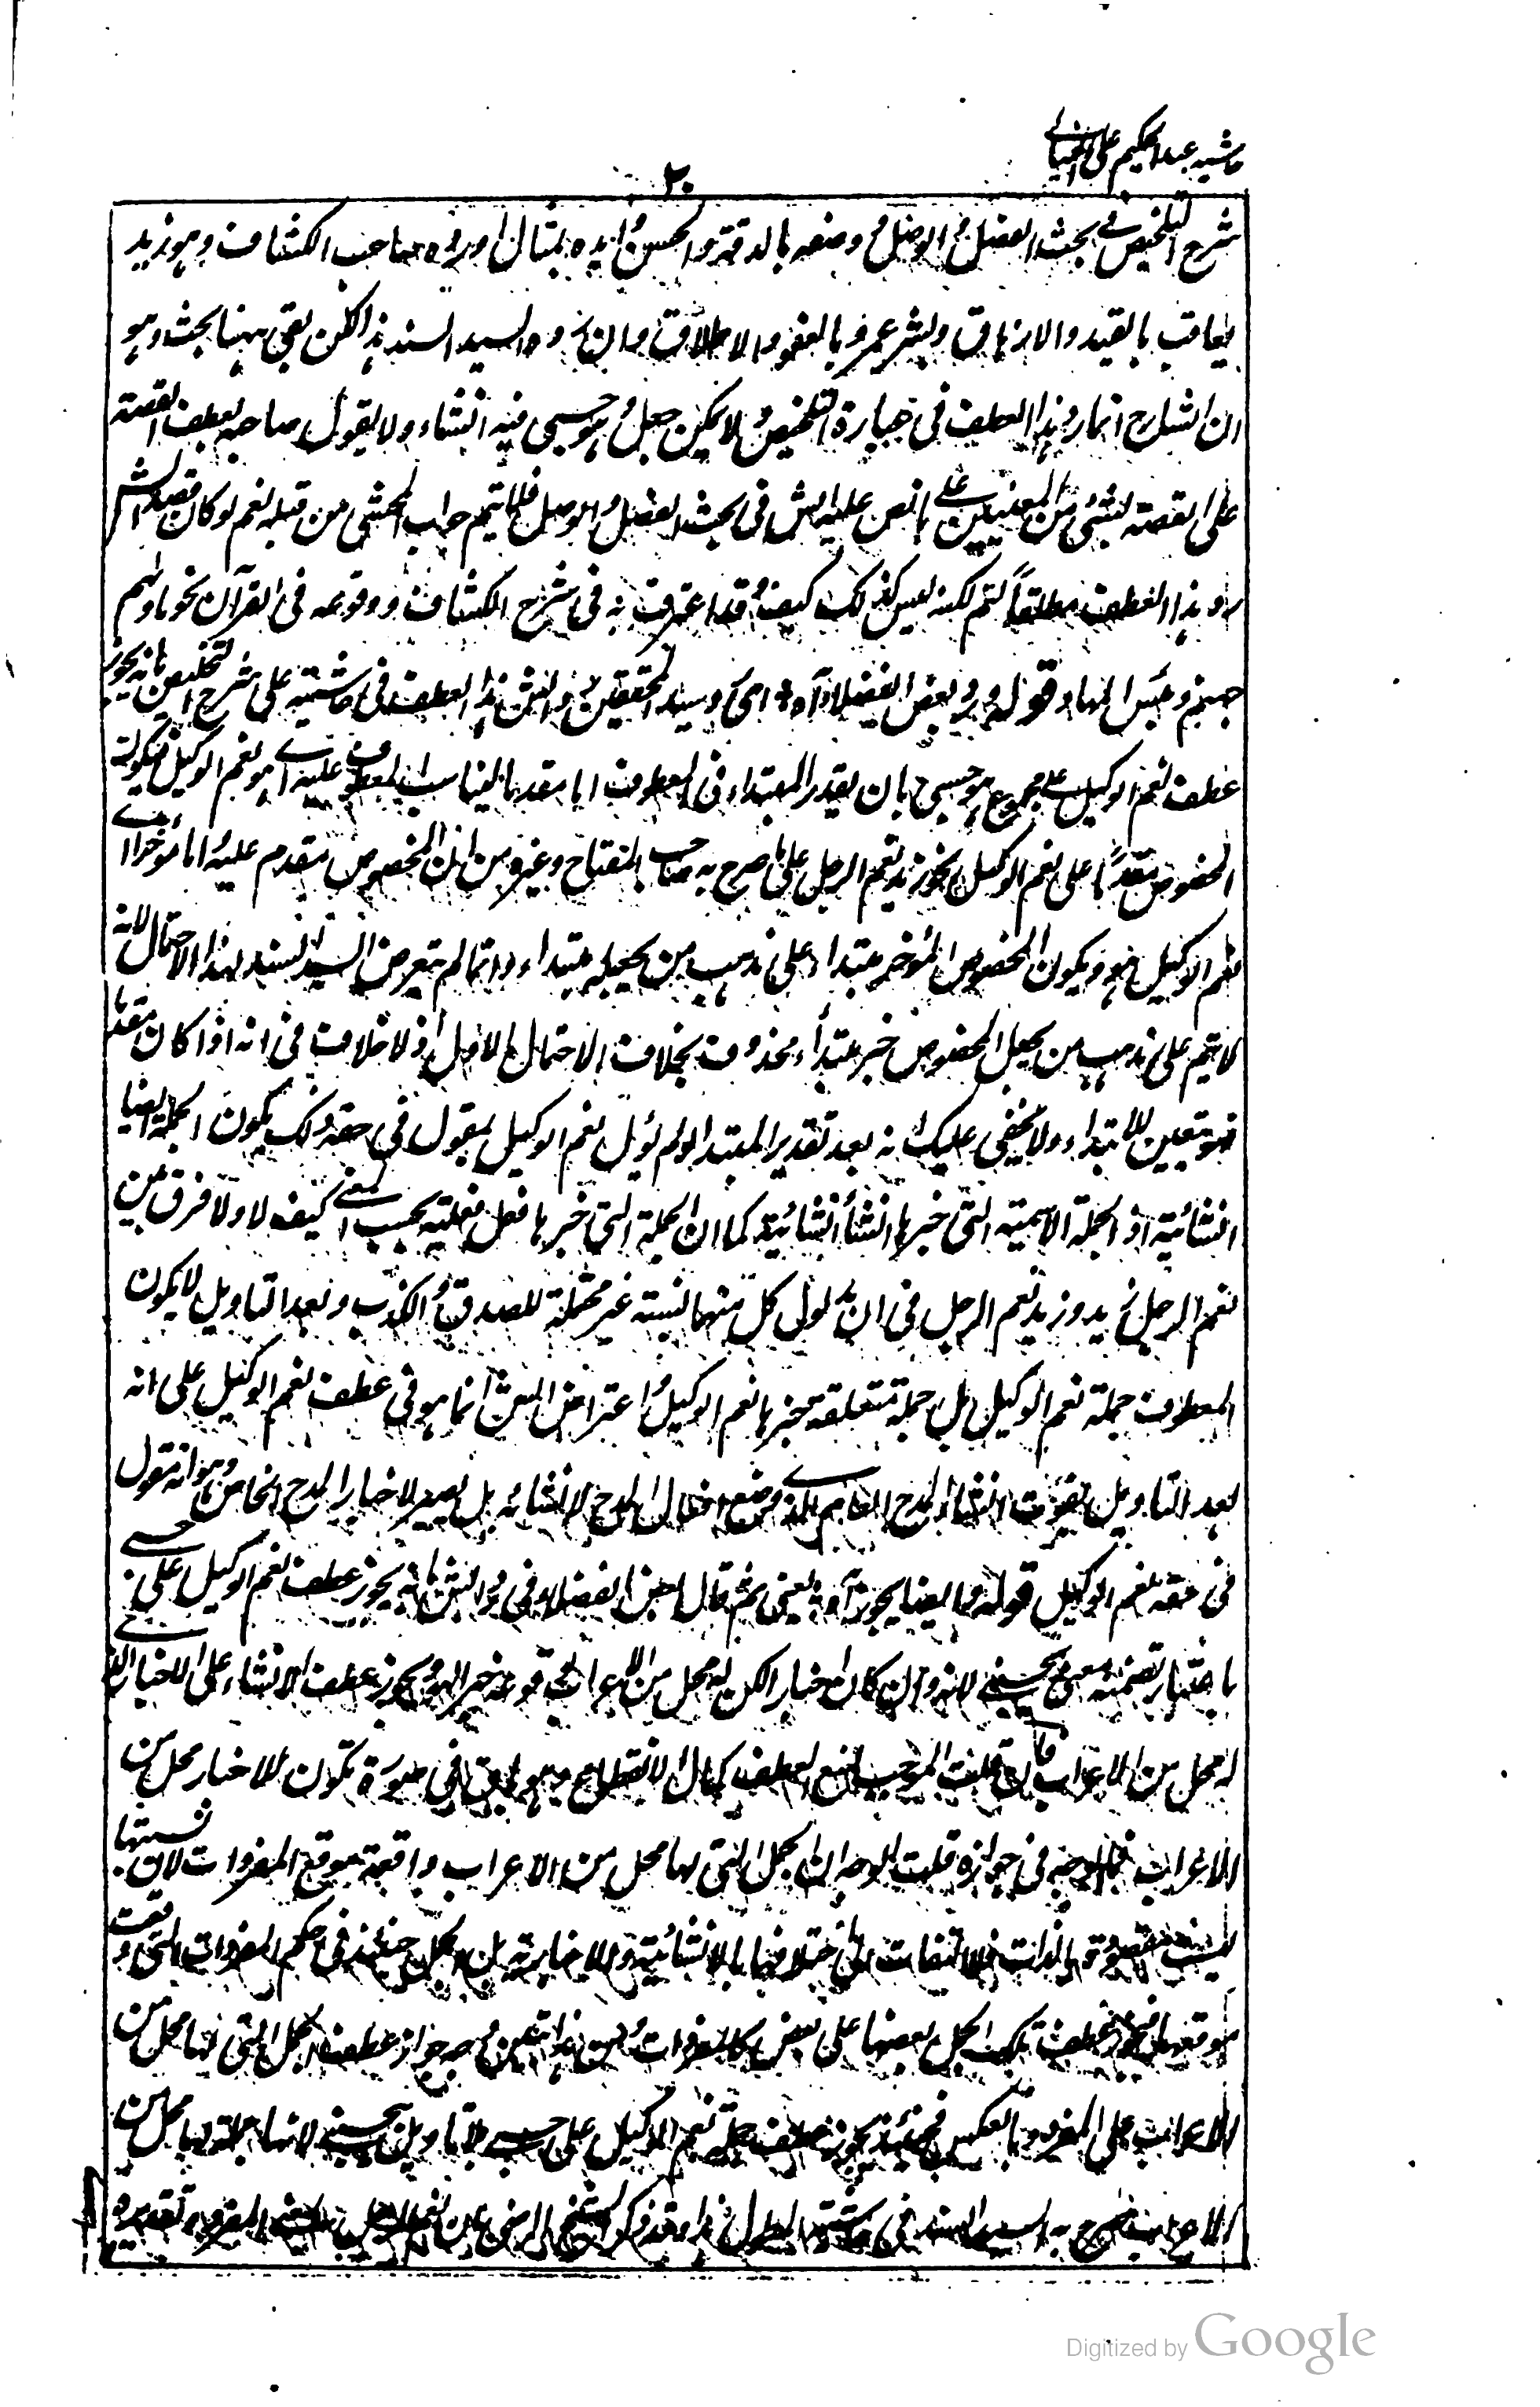 حاشيه عبد الحكيم على الخيالي
٢٠
شرح التلخيص فى بحث الفصل و الوصل و وصفه بالدقة و الحسن و ايده بمثال اورده صاحب الكشاف وهو زيد
يعاقب بالقيد والارهاق وبشر عمرو بالعفو والاطلاق وان رده السيد السند هذا لكن بقى ههنا بحث وهو
ان الشارح انما رد هذا العطف فى عبارة التلخيص و لا يمكن جعل و هو حسبى فيه انشاء ولا يقول صاحبه بعطف القصة
على القصة بشئ من المعنيين على ما نص عليه الش فى بحث الفصل و الوصل فلا يتم جواب المحشى من قبله نعم لو كان قصد الش
رد هذا العطف مطلقاً لتم لكنه ليس كذلك كيف و قد اعترف به فى شرح الكشاف ووقوعه فى القرآن نحو ماواهم
جهنم وبئس المهاد قوله ورد بعض الفضلاء آه اى سيد المحققين رد الش هذا العطف فى حاشيته على شرح التلخيص بانه يجوز
عطف نعم الوكيل على مجموع هو حسبى بان يقدر المبتداء فى المعطوف اما مقدما ليناسب المعطوف عليه اى هو نعم الوكيل فيكون
المخصوص مقدمًا على نعم الوكيل نحو زيد نعم الرجل على ما صرح به صاحب المفتاح وغيره من ان المخصوص مقدم عليه اما مؤخرا اى
نعم الوكيل هو ويكون المخصوص المؤخر مبتداء على مذهب من يجعله مبتداء وانما لم يتعرض السيد السند لهذا الاحتمال لانه
لا يتم على مذهب من يجعل المخصوص خبر مبتداء محذوف بخلاف الاحتمال الاول اذ لا خلاف فى انه اذا كان مقدما
فهو متعين للابتداء ولا يخفى عليك انه بعد تقدير المبتدا لو لم يؤل نعم الوكيل بمقول فى حقه ذلك يكون الجملة ايضا
انشائية اذ الجملة الاسمية التى خبرها انشاء انشائية كما ان الجملة التى خبرها فعل فعلية بحسب المعنى كيف لا ولا فرق بين
نعم الرجل زيد وزيد نعم الرجل فى ان مدلول كل منهما نسبته غير محتملة للصدق و الكذب وبعد التاويل لا يكون
المعطوف جملة نعم الوكيل بل جملة متعلقة خبرها نعم الوكيل و اعتراض الش انما هو فى عطف نعم الوكيل على انه
بعد التاويل يفوت انشاء المدح العام الذى وضع افعال المدح لانشائه بل يصير للاخبار المدح الخاص وهو انه مقول
فى حقه نعم الوكيل قوله و ايضا يجوز آه يعنى ثم قال بعض الفضلاء فى رد الش بانه يجوز عطف نعم الوكيل على حسبى
باعتبار تضمنه معنى يحسبنى لانه وان كان اخبارا لكن له محل من الاعراب لوقوعه خبر الهو و يجوز عطف الانشاء على الاخبار الذى
له محل من الاعراب فان قلت الموجب لمنع العطف كمال الانقطاع وهو باق فى صورة تكون للاخبار محل من
الاعراب فما الوجه فى جوازه قلت الوجه ان الجمل التى لها محل من الاعراب واقعة موقع المفردات لان نسبتها
ليست مقصودة بالذات فلا التفات الى اختلافها بالانشائية والاخبارية بل الجمل حينئذ فى حكم المفردات التى وقعت
موقعها فيجوز عطف تلك الجمل بعضها على بعض كالمفردات ومن هذا تعين وجه جواز عطف الجمل التى لها محل من
الاعراب على المفرد وبالعكس فحينئذ يجوز عطف جملة نعم الوكيل على حسبى بلا تاويل يحسبنى لانها جملة لها محل من
الاعراب صرح به السيد السند فى حاشية المطول هذا وقد ذكر الشيخ الرضى ان نعم الرجل بمعنى المفرد وتقديره
Digitized by Google